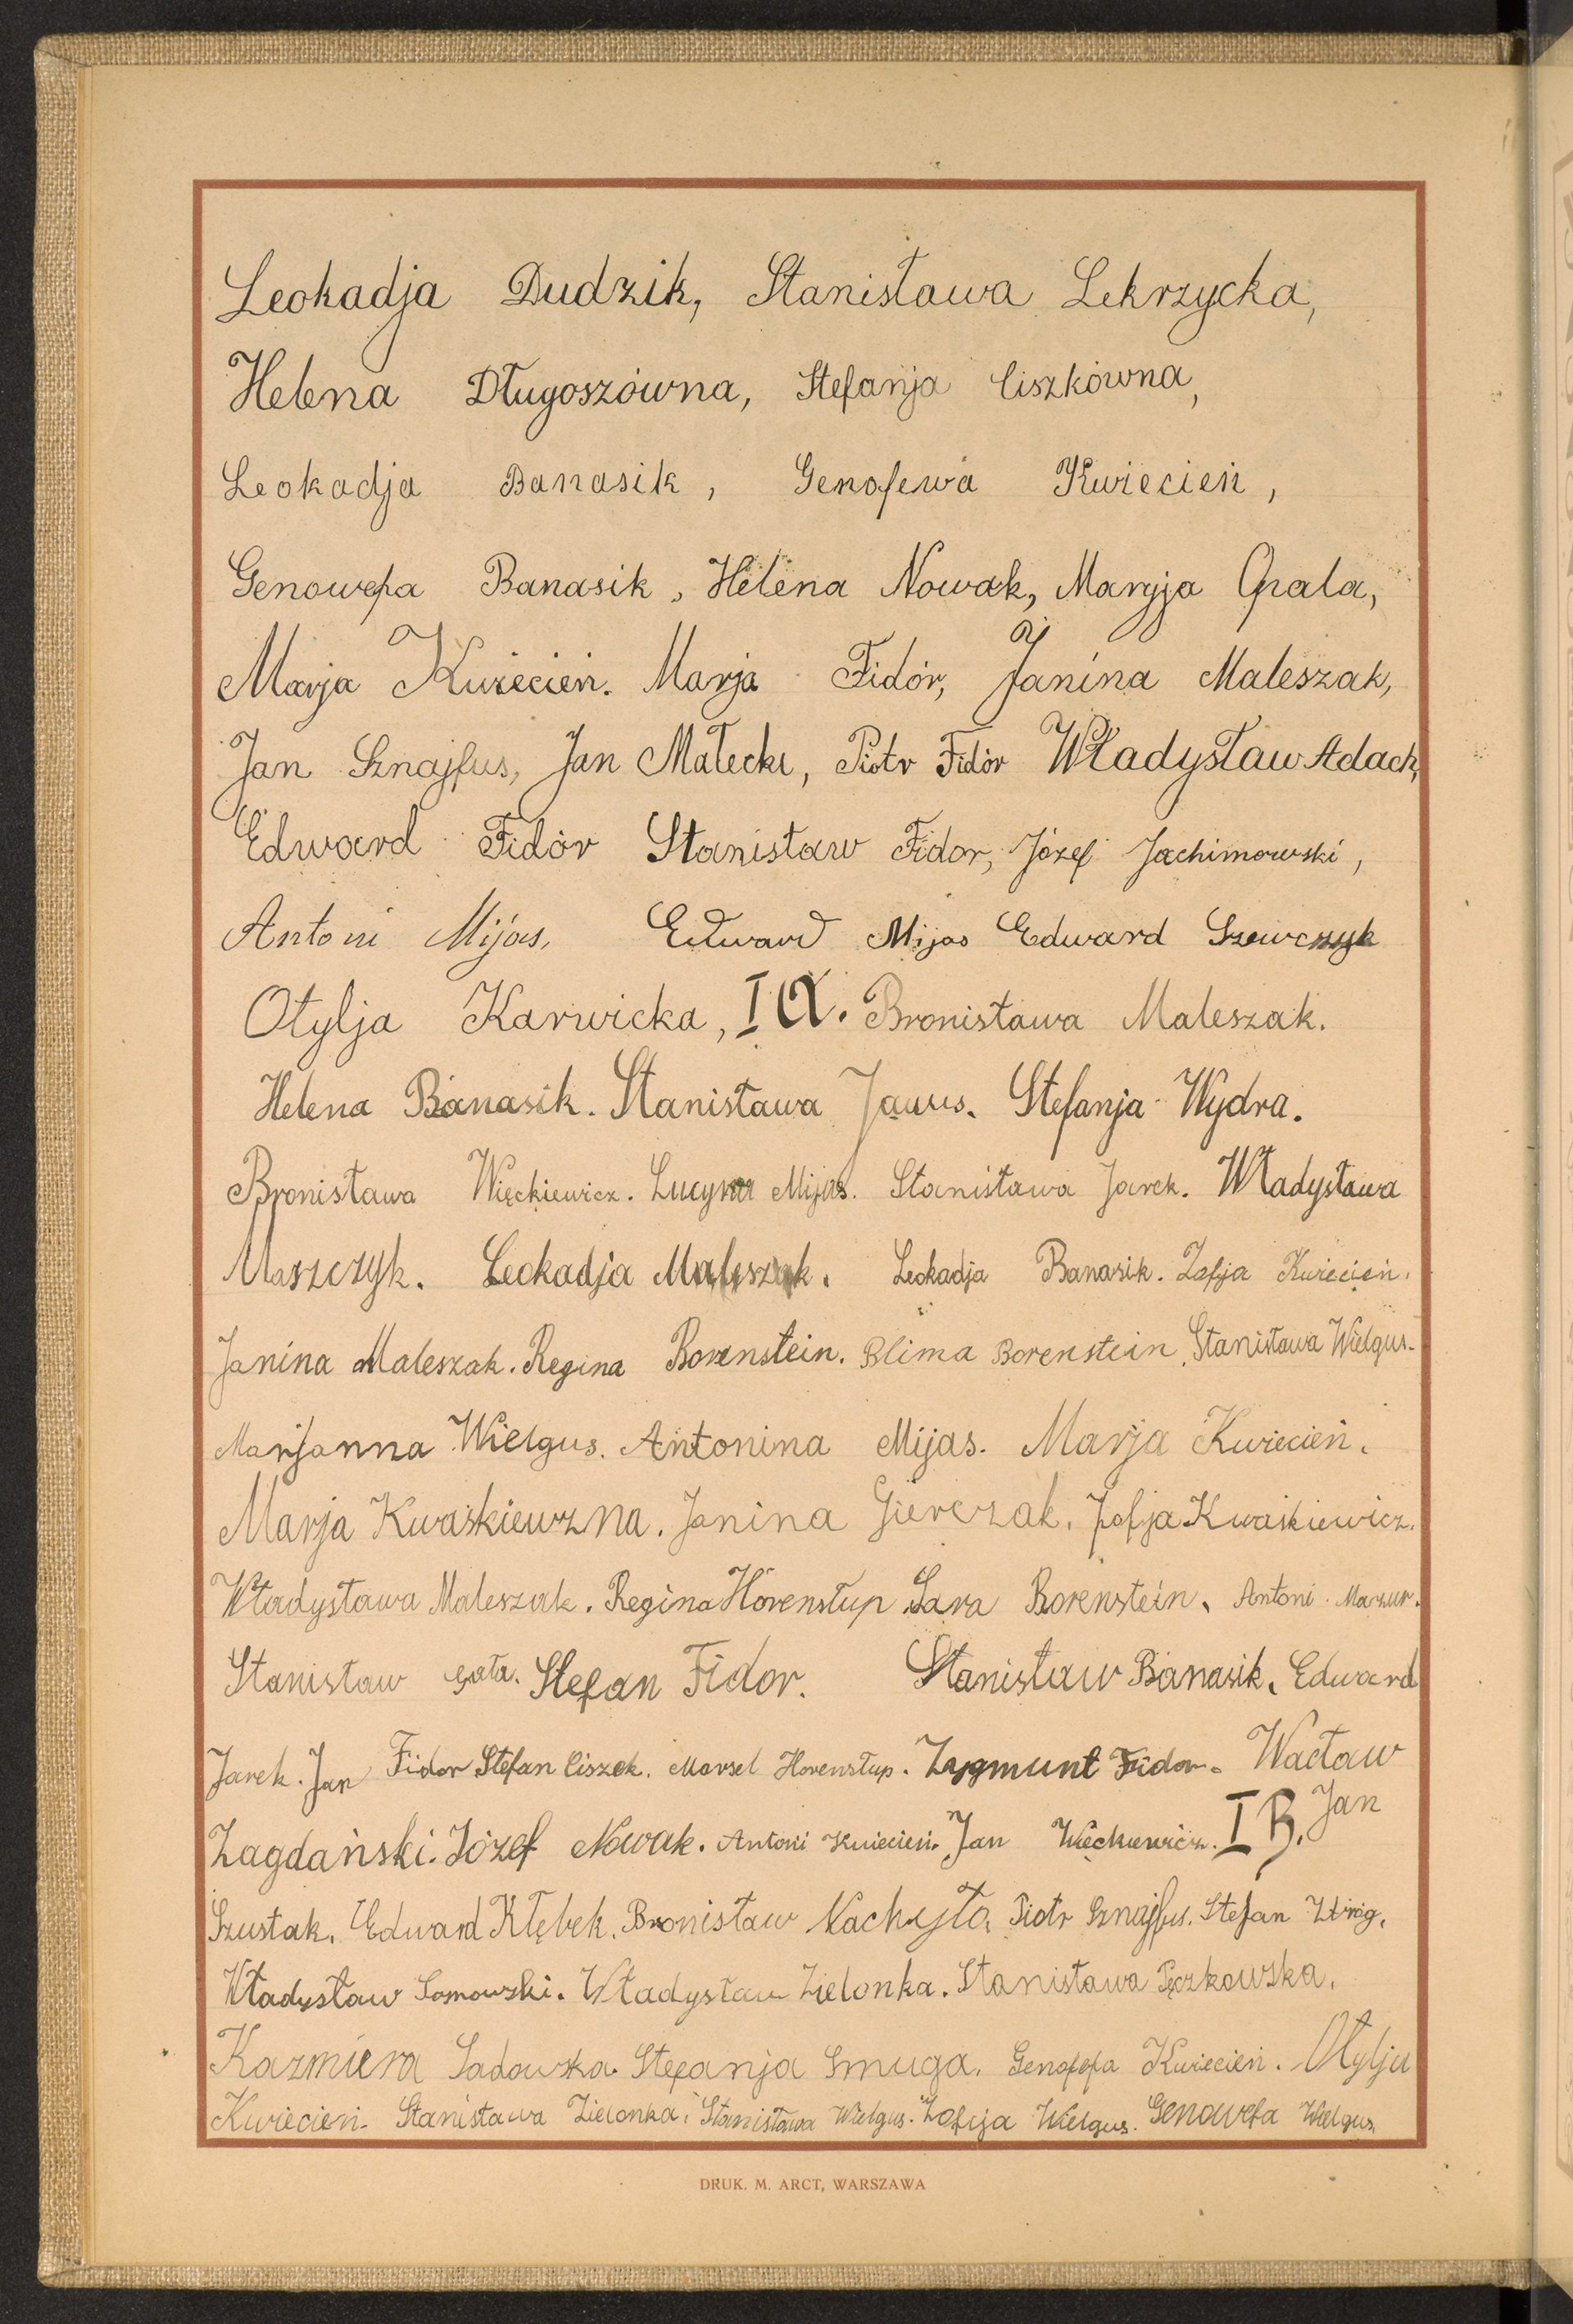 Leokadja Dudzik, Stanisława Lekrzycka,
Helena Długoszówna, Stefanja Ciszkówna,
Leokadja Banasik, Genofewa Kwiecień,
Genowefa Banasik, Helena Nowak, Maryja Gpała,
Marja Kwiecień. Marja Fidór, Janina Maleszak,
Jan Sznajfus, Jan Małecki, Piotr Fidór Władysław Adach,
Edward Fidór Stanisław Fidor, Józef Jachimowski,
Antoni Mijas, Edward Mijas Edward Szewczyk
Otylja Karwicka, I a. Bronisława Maleszak.
Helena Banasik. Stanisława Stefanja Wydra.
Bronisława Więckiewicz. Lucyna Mijas. Stanisława Jarek. Władysława
Maszczyk. Leokadja Maleszak. Leokadja Banasik. Zofja Kwiecień.
Janina Maleszak. Regina Borenstein. Blima Borenstein. Stanisława Wielgus.
Marjanna Wielgus. Antonina Mijas. Marja Kwiecień.
Marja Kwaskiewzna. Janina Gierczak. Zofja Kwaśkiewicz.
Władysława Maleszak. Regina Horensłup. Sara Borenstein. Antoni Mazur.
Stanisław Stefan Fidor. Stanisław Banasik. Edward
Jarek. Jan Fidor Stefan Ciszek. Marsel Horensłup. Zygmunt Fidor. Wacław
Zagdański. Józef Nowak. Antoni Kwiecień. Jan Więckiewicz. I B. Jan
Szustak. Edward Kłębek. Bronisław Nachyła Piotr Sznajfus. Stefan
Władysław Somowski. Władysław Zielonka. Stanisława Pęczkowska.
Kazmiera Sadowska. Stefanja Smuga. Genofefa Kwiecień. Otylja
Kwiecień. Stanisława Zielonka. Stanisława Wielgus. Zofija Wielgus. Genowefa Wielgus.
DRUK. M. ARCT, WARSZAWA